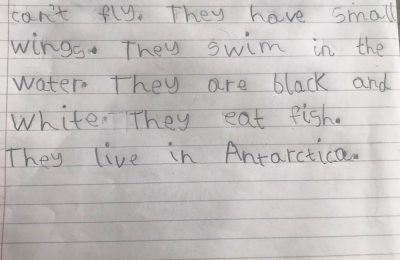 can't fly. They have small
wings. They swim in the
water. They are black and
white. They eat fish.
They live in Antarctica.